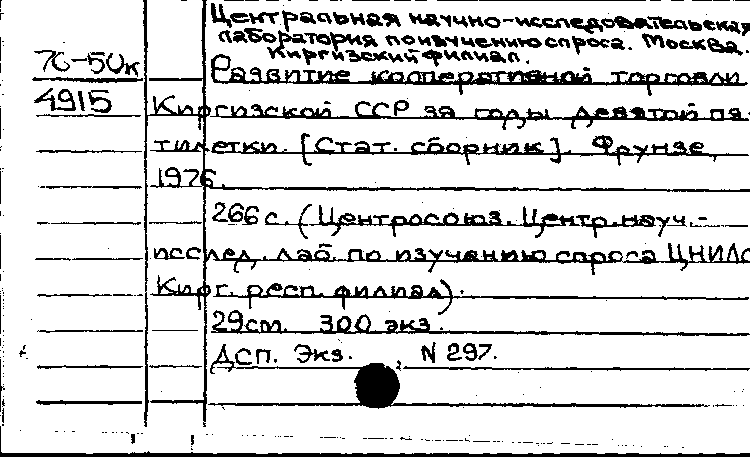 Центральная научно-исследовательская
лаборатория по изучению спроса. Москва.
Киргизский филиал.
76-50к
Развитие кооперативной торговли
4915
Киргизской ССР за годы девятой пя-
тилетки. [Стат. сборник]. Фрунзе,
1976.
266 с. (Центросоюз. Центр. науч.-
исслед. лаб. по изучению спроса ЦНИЛС
Кирг. респ. филиал).
29см. 300 экз.
ДСП. Экз. , N 297.